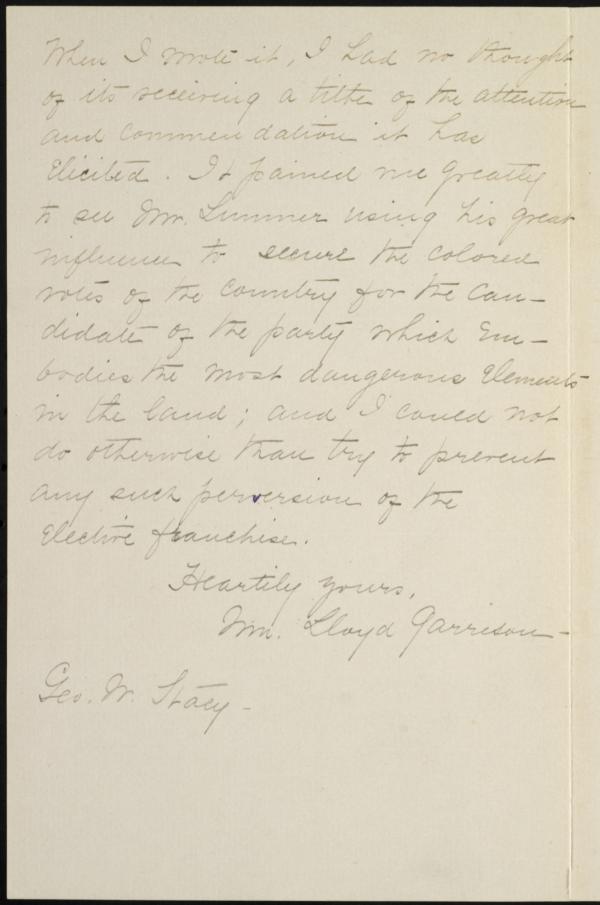 When I wrote it, I had no thought
of its receiving a tithe of the attention
and commendation it has
elicited. It pained me greatly
to see Mr. Sumner using his great
influence to secure the colored
votes of the country for the can-
didate of the party which em-
bodies the most dangerous elements
in the land; and I could not
do otherwise than try to prevent
any such perversion of the
elective franchise.
Heartily yours,
Wm. Lloyd Garrison-
Geo. W. Stacy-